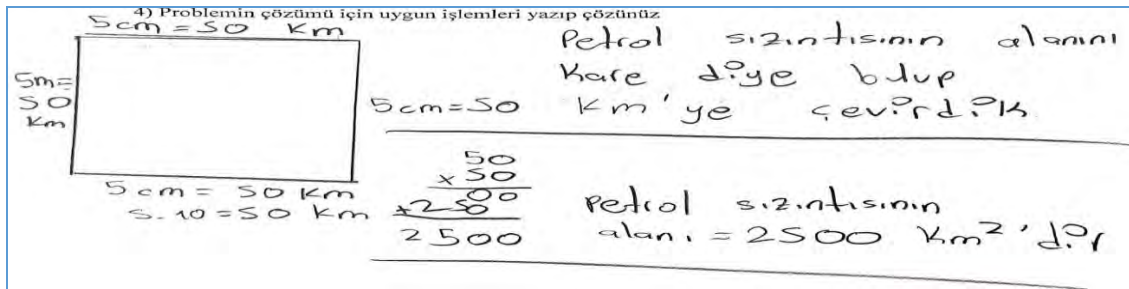 4) Problemin çözümü için uygun işlemleri yazıp çözünüz
5cm = 50 Km
5m=
50
Km
5 cm = 50 Km
5.10 = 50 Km
Petrol sızıntısının alanını
Kare diye bulup
5cm=50 Km'ye çevirdik
50
x50
00
+250
2500
Petrol sızıntısının
alanı = 2500 Km²'dir